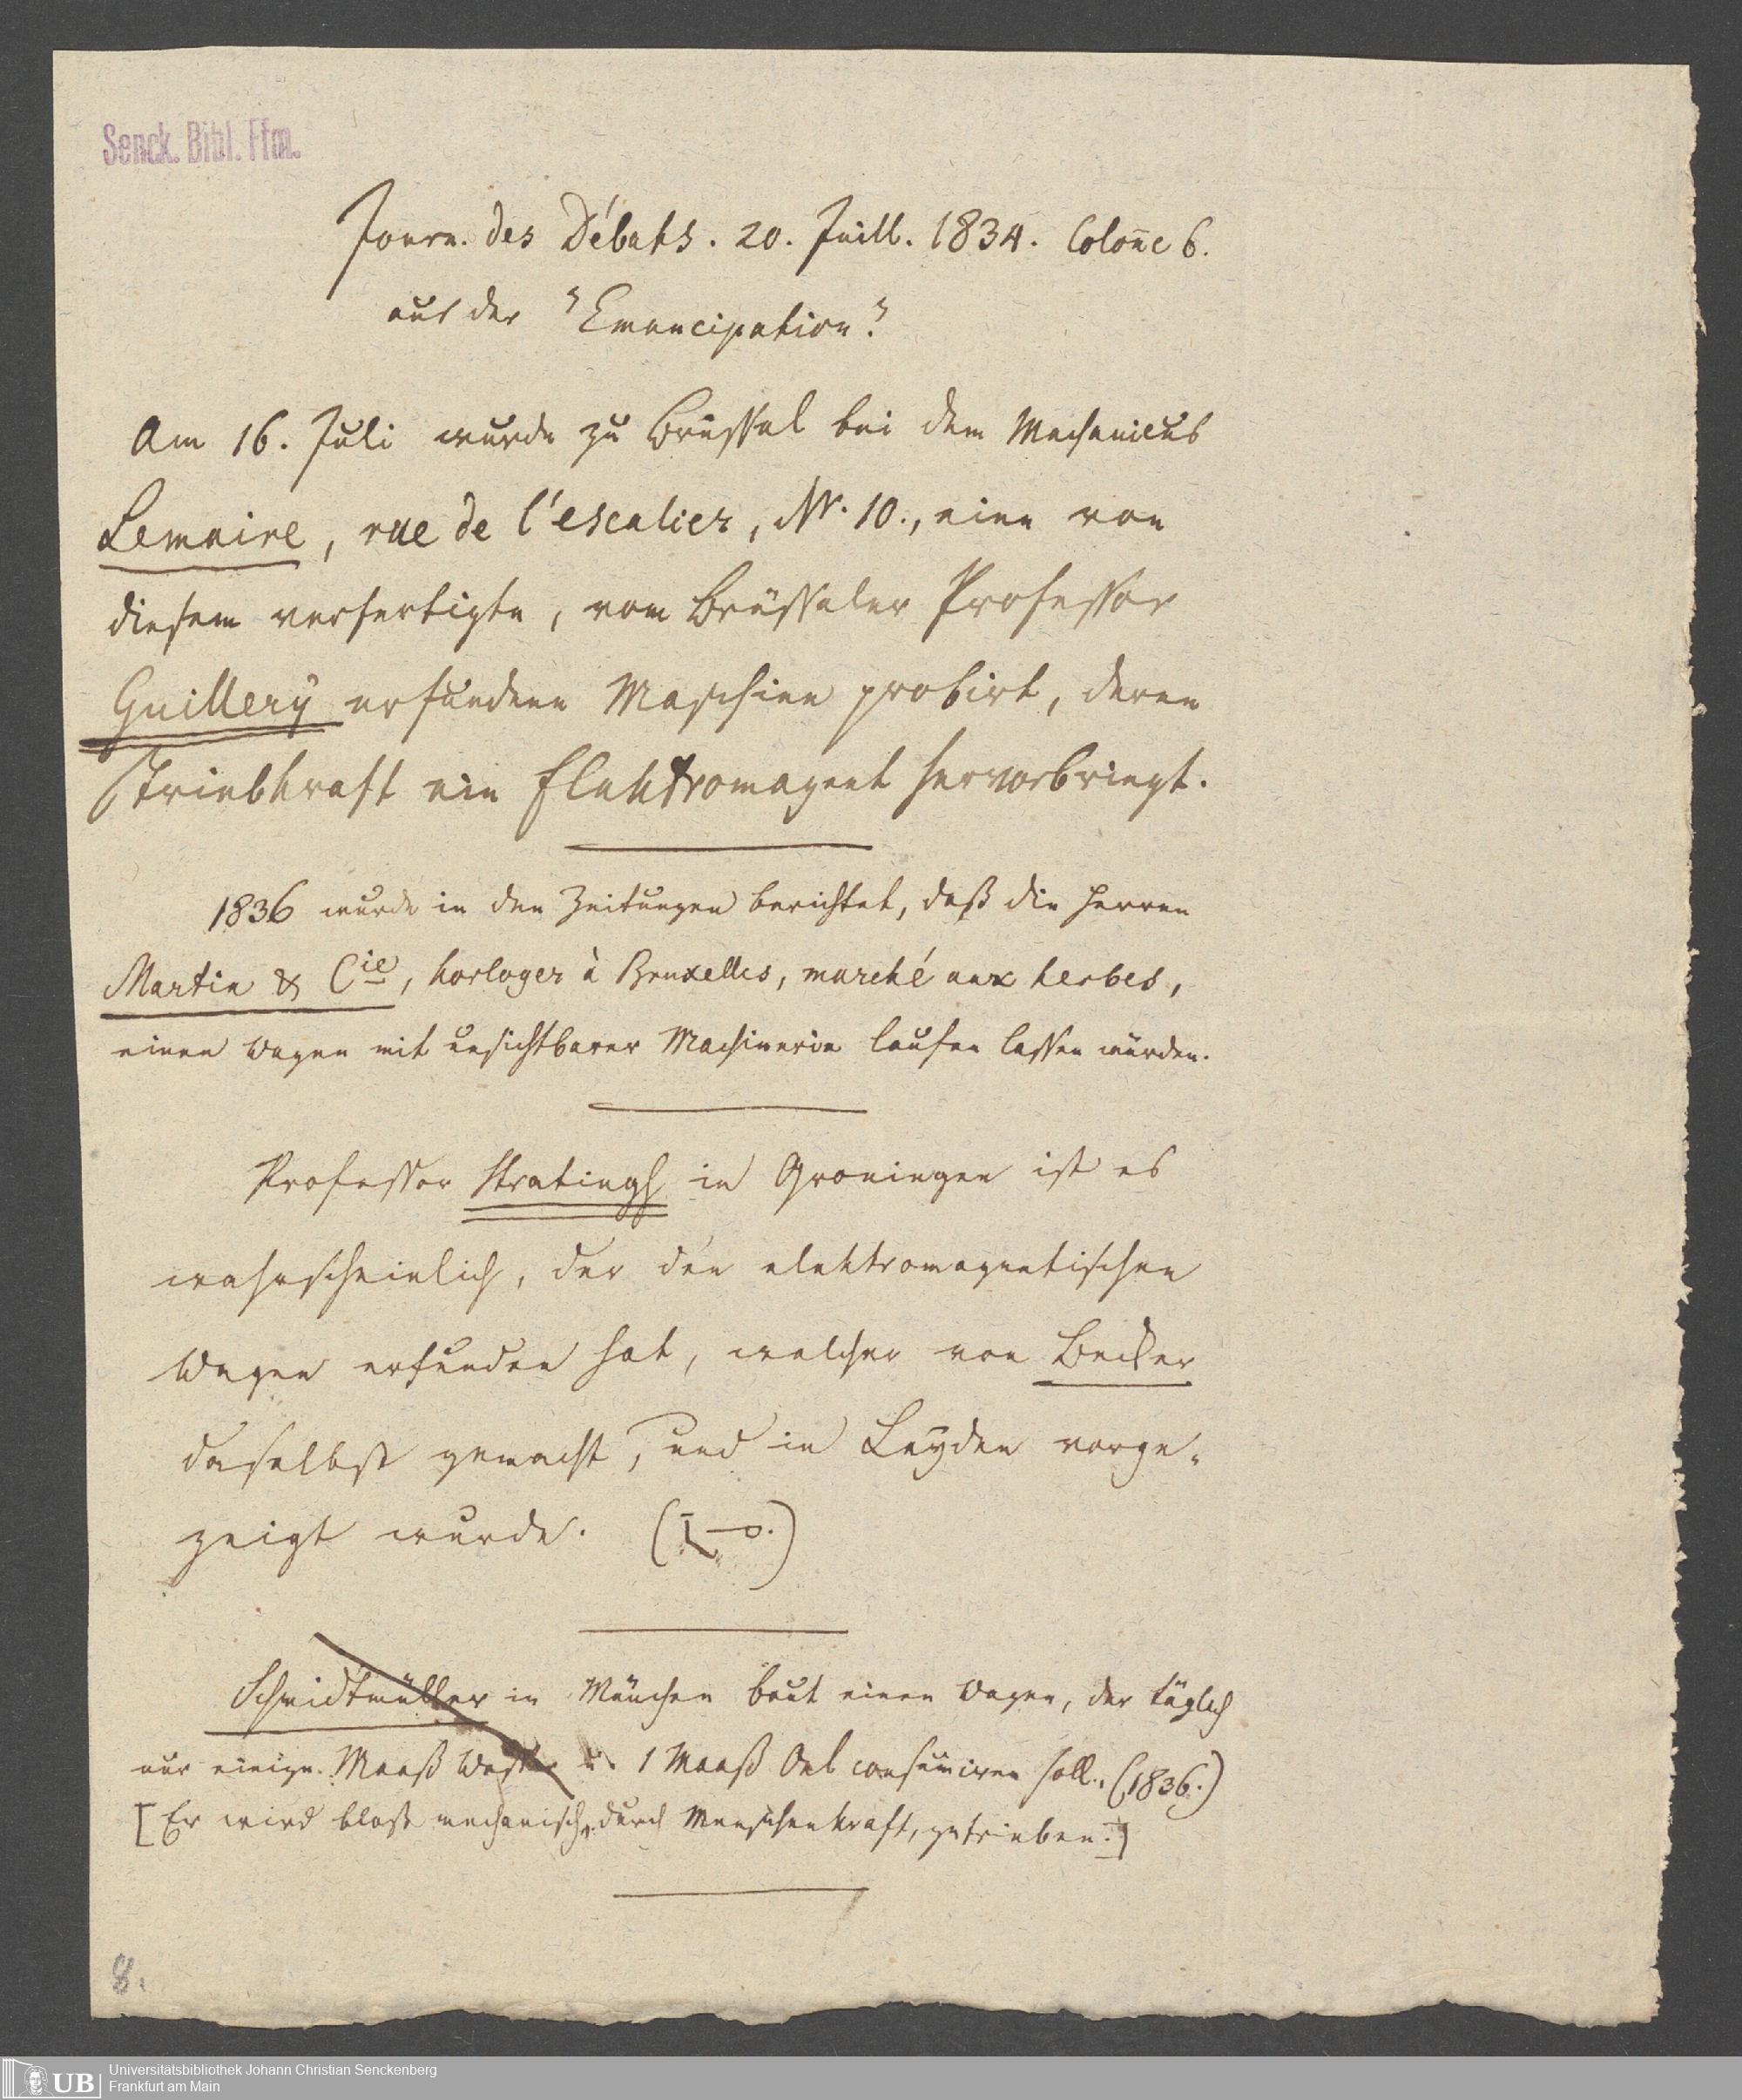 Senck. Bibl. Ffm.
Journ. des Débats. 20. Juill. 1834. Colon̄e 6.
aus der "Emancipation".
Am 16. Juli wurde zu Brüssel bei dem Mechanicus
Lemaire, rue de l'escalier, Nr. 10., eine von
diesem verfertigte, vom Brüsseler Professor
Guillery erfundene Maschine probirt, deren
Triebkraft ein Elektromagnet hervorbringt.
1836 wurde in den Zeitungen berichtet, daß die Herren
Martin & Cie, horloger à Bruxelles, marché aux herbes,
einen Wagen mit unsichtbarer Machinerie laufen lassen würden.
Professor Stratingh in Groningen ist es
wahrscheinlich, der den elektromagnetischen
Wagen erfunden hat, welcher von Becker
daselbst gemacht, und in Leyden vorge-
zeigt wurde.
Schmidtmüller in München baut einen Wagen, der täglich
nur einige Maaß Wasser u. 1 Maaß Oel consumiren soll. (1836.)
[Er wird bloß mechanisch, durch Menschenkraft, getrieben.]
8.
UB
Universitätsbibliothek Johann Christian Senckenberg
Frankfurt am Main